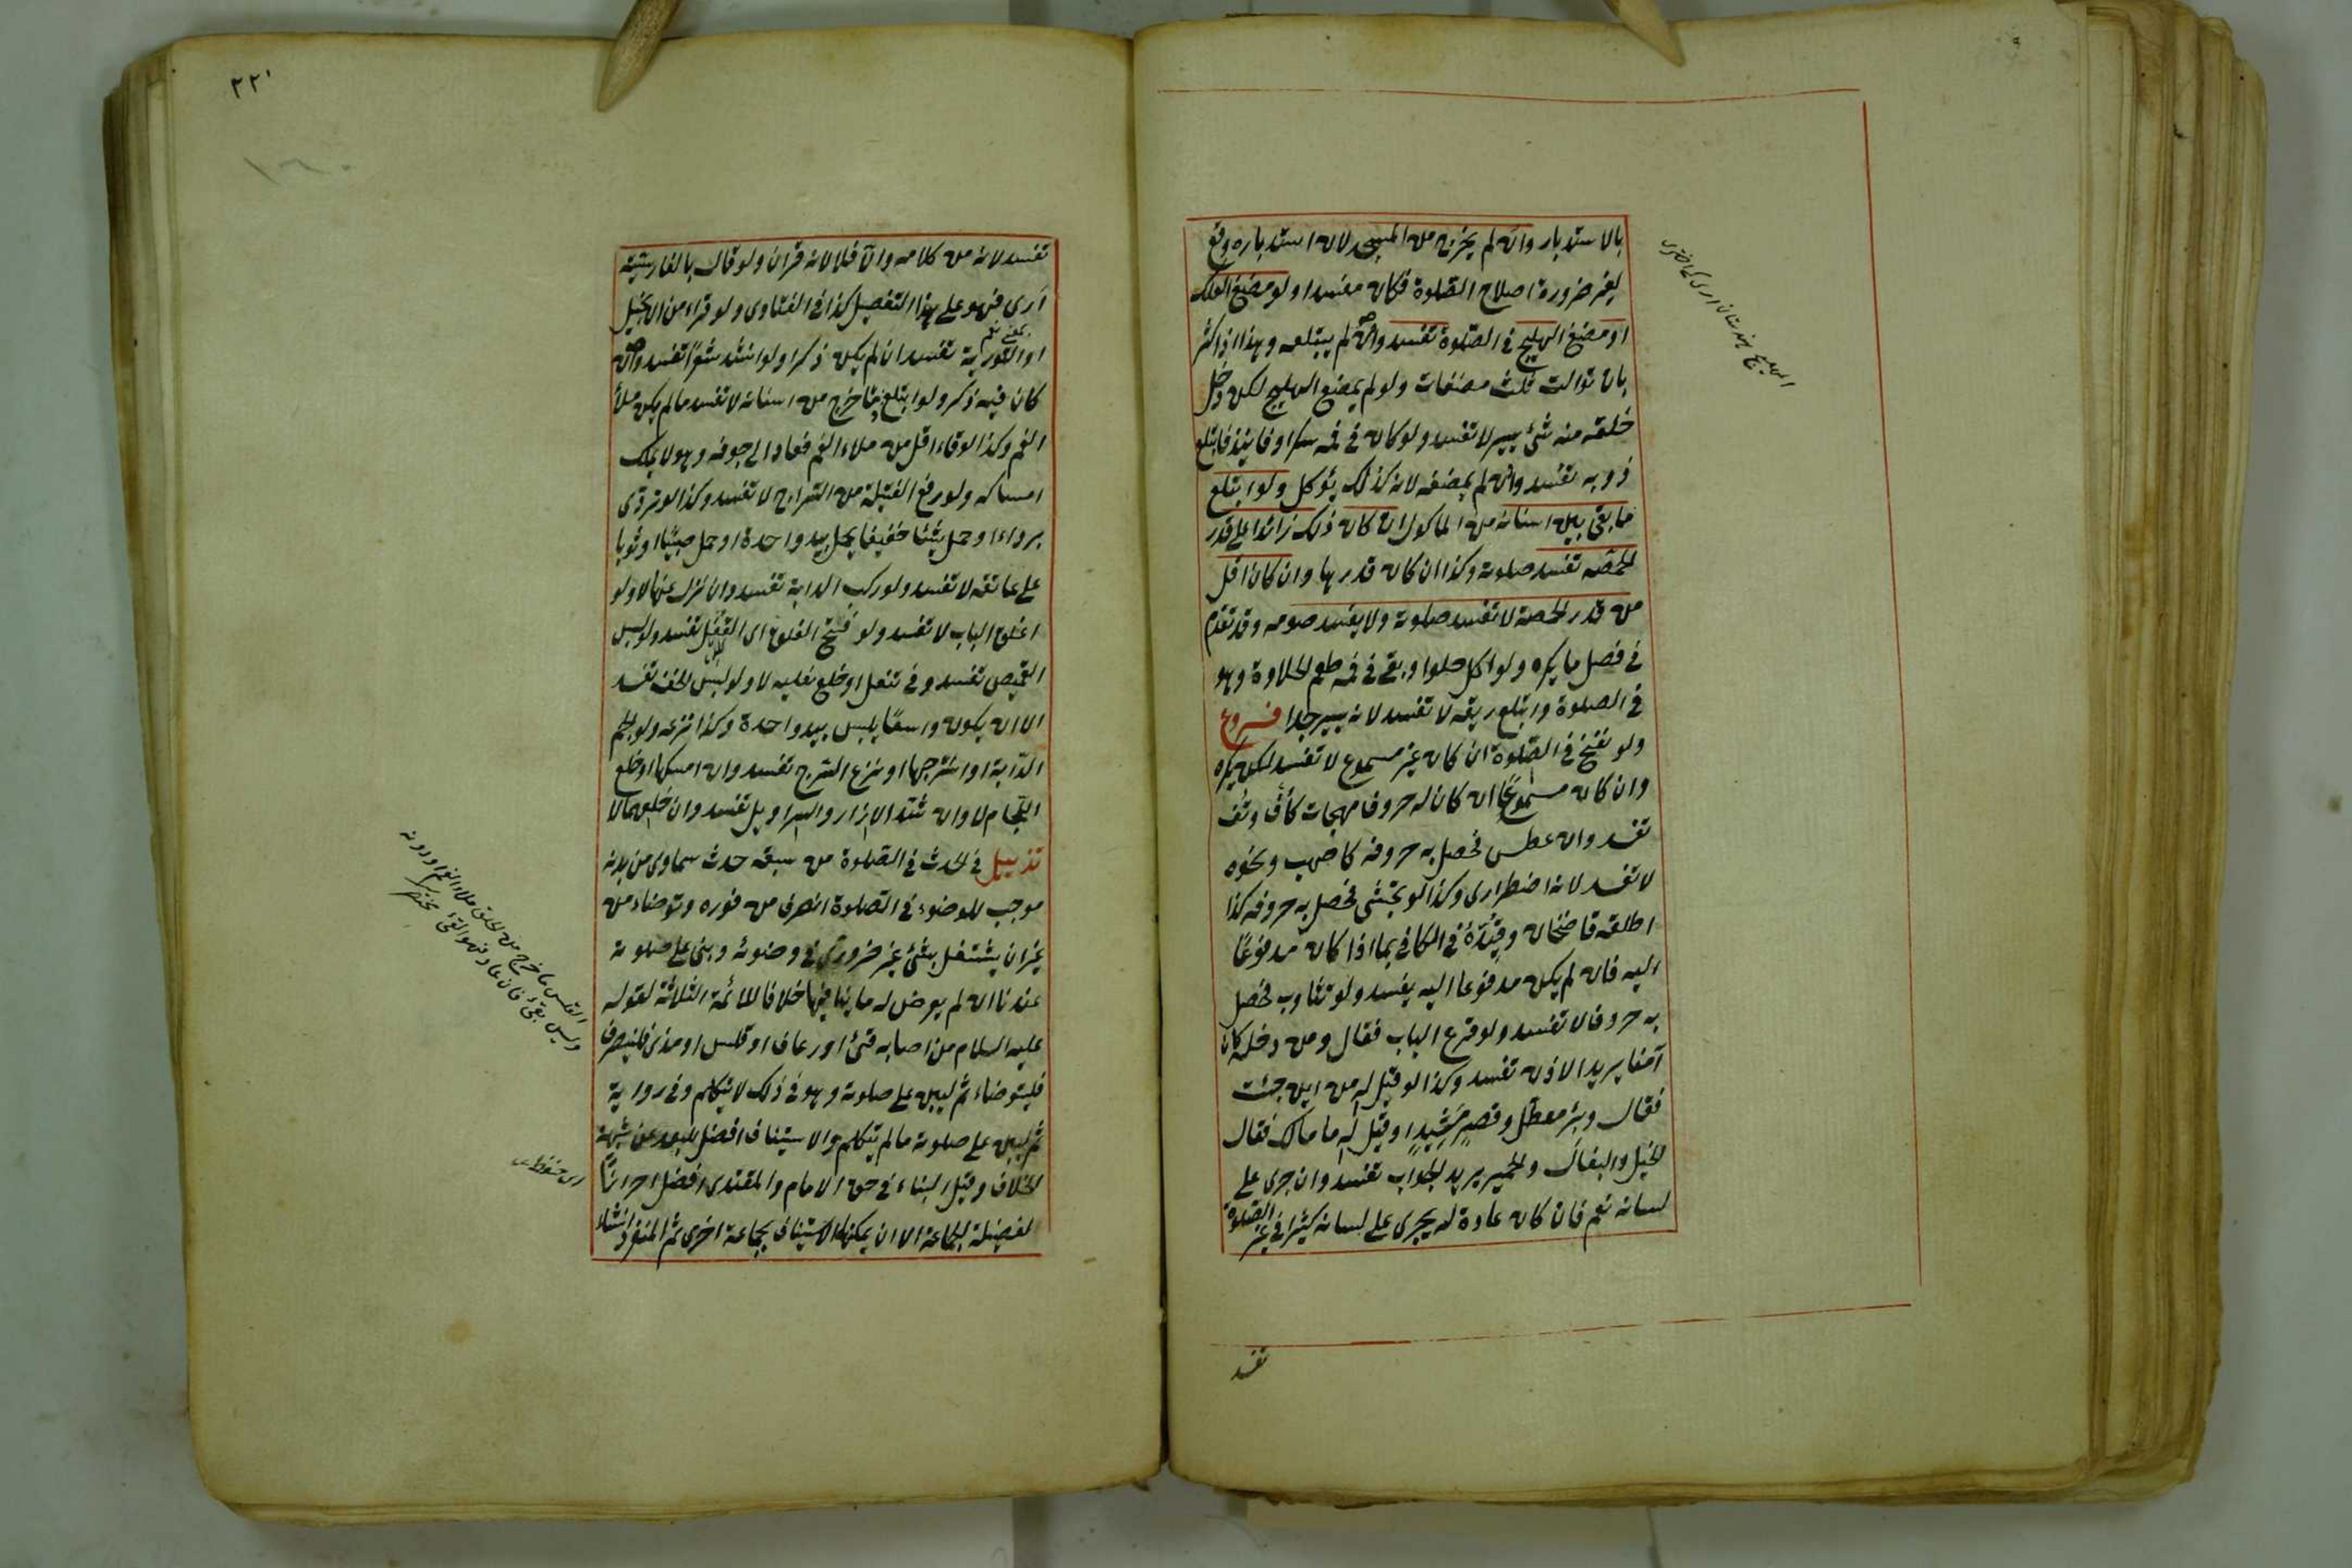 بالاستدبار وان لم يخرج من المسجد لان استدباره وقع
لغير ضرورة اصلاح الصلوة فكان مفسدا ولو مضغ العلك
او مضغ الهليلج في الصلوة تفسد وان لم يبتلعه وهذا اذا كثر
بان توالت ثلث مضغات ولو لم يمضغ الهليلج لكن دخل
حلقه منه شئ يسير لا تفسد ولو كان في فمه سكر او فانيذ فابتلع
ذوبه تفسد وان لم يمضغه لانه كذلك يؤكل ولو ابتلع
ما بقى بين اسنانه من المأكول ان كان ذلك زائدا على قدر
الحمصة تفسد صلوته وكذا ان كان قدرها وان كان اقل
من قدر الحمصة لا تفسد صلوته ولا يفسد صومه وقد تقدم
في فصل ما يكره ولو اكل حلوا وبقى في فمه طعم الحلاوة وهو
في الصلوة وابتلع ريقه لا تفسد لانه يسير جدا فروع
ولو نفخ في الصلوة ان كان غير مسموع لا تفسد لكن يكره
وان كان مسموعا ان كان له حروف مهجات كأف وتف
تفسد وان عطس فحصل به حروف كاصهب ونحوه
لا تفسد لانه اضطرارى وكذا لو تجشى فحصل به حروف كذا
اطلقه قاضيخان وقيده في الكافى بما اذا كان مدفوعا
اليه فان لم يكن مدفوعا اليه يفسد ولو تثاوب فحصل
به حروف لا تفسد ولو قرع الباب فقال ومن دخله كان
آمنا يريد الاذن تفسد وكذا لو قيل له من اين جئت
فقال وبئر معطلة وقصر مشيد او قيل له ما مالك فقال
الخيل والبغال والحمير يريد الجواب تفسد وان جرى على
لسانه نعم فان كان عادة له يجرى على لسانه كثيرا في غير الصلوة
تفسد
٢٢١
تفسد لانه من كلامه والا فلا لانه قرآن ولو قال بالفارسية
آرى فهو على هذا التفصيل كذا في الفتاوى ولو قرأ من الانجيل
او التورية تفسد ان لم يكن ذكرا ولو انشد شعرا تفسد وان
كان فيه ذكر ولو ابتلع دما خرج من اسنانه لا تفسد ما لم يكن ملأ
الفم وكذا لو قاء اقل من ملاء الفم فعاد الى جوفه وهو لا يملك
امساكه ولو رفع الفتيلة من السراج لا تفسد وكذا لو تردى
برداء او حمل شيئا خفيفا يحمل بيد واحدة او حمل صبيا او ثوبا
على عاتقه لا تفسد ولو ركب الدابة تفسد وان نزل عنها لا ولو
اغلق الباب لا تفسد ولو فتح الغلق اى القفل تفسد ولو لبس
القميص تفسد وفي تنعل او خلع نعليه لا ولو لبس الخف تفسد
الا ان يكون واسعا يلبس بيد واحدة وكذا نزعه ولو الجم
الدابة او اسرجها او نزع السرج تفسد وان امسكها او خلع
اللجام لا وان شد الازار والسراويل تفسد وان خلعهما لا
تذييل في الحدث في الصلوة من سبقه حدث سماوى من بدنه
موجب للوضوء في الصلوة انصرف من فوره وتوضاء من
غير ان يشتغل بشئ غير ضرورى في وضوئه وبنى على صلوته
عندنا ان لم يعرض له ما ينافيها خلافا للائمة الثلاثة لقوله
عليه السلام من اصابه قئ او رعاف او قلس او مذى فلينصرف
فليتوضاء ثم ليبن على صلوته وهو في ذلك لا يتكلم وفي رواية
ثم ليبن على صلوته ما لم يتكلم والاستيناف افضل للبعد عن شبهة
الخلاف وقيل البناء في حق الامام والمقتدى افضل احرازا
لفضيلة الجماعة الا ان يمكنهما الاستيناف بجماعة اخرى ثم المنفرد ان شاء
القلس ما خرج من الحلق ملاء الفم او دونه
وليس بقئ فان عاد فهو القئ